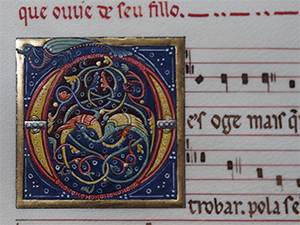 que ouue de seu fillo.
Des oge mais q̃
trobar. pola se